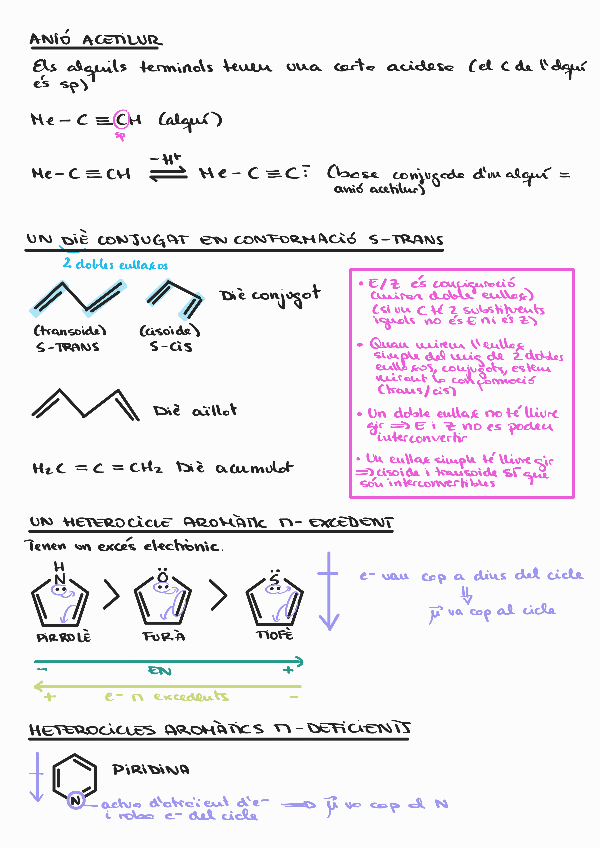 ANIÓ ACETILUR
Els alquils terminals tenen una certa acidesa (el C de l'alquí
és sp)
Me - C ≡ CH (alquí)
sp
Me - C ≡ CH -H⁺ ⇌ Me - C ≡ C:⁻ (base conjugada d'un alquí =
anió acetilur)
UN DIÈ CONJUGAT EN CONFORMACIÓ S-TRANS
2 dobles enllaços
Diè conjugat
(transoide) (cisoide)
S-TRANS S-CIS
Diè aïllat
H₂C = C = CH₂ Diè acumulat
• E/Z és configuració
(mirar doble enllaç)
(si un C té 2 substituents
iguals no és E ni és Z)
• Quan mirem l'enllaç
simple del mig de 2 dobles
enllaços, conjugats, estem
mirant la conformació
(trans/cis)
• Un doble enllaç no té lliure
gir ⇒ E i Z no es poden
interconvertir
• Un enllaç simple té lliure gir
⇒ cisoide i transoide SÍ que
són interconvertibles
UN HETEROCICLE AROMÀTIC Π-EXCEDENT
Tenen un excés electrònic.
H
N > O > S
PIRROLÈ FURÀ TIOFÈ
e- van cap a dins del cicle
⇓
μ va cap al cicle
- EN +
+ e- π excedents -
HETEROCICLES AROMÀTICS Π-DEFICIENTS
PIRIDINA
N
actua d'atraient d'e- ⇒ μ va cap al N
i roba e- del cicle